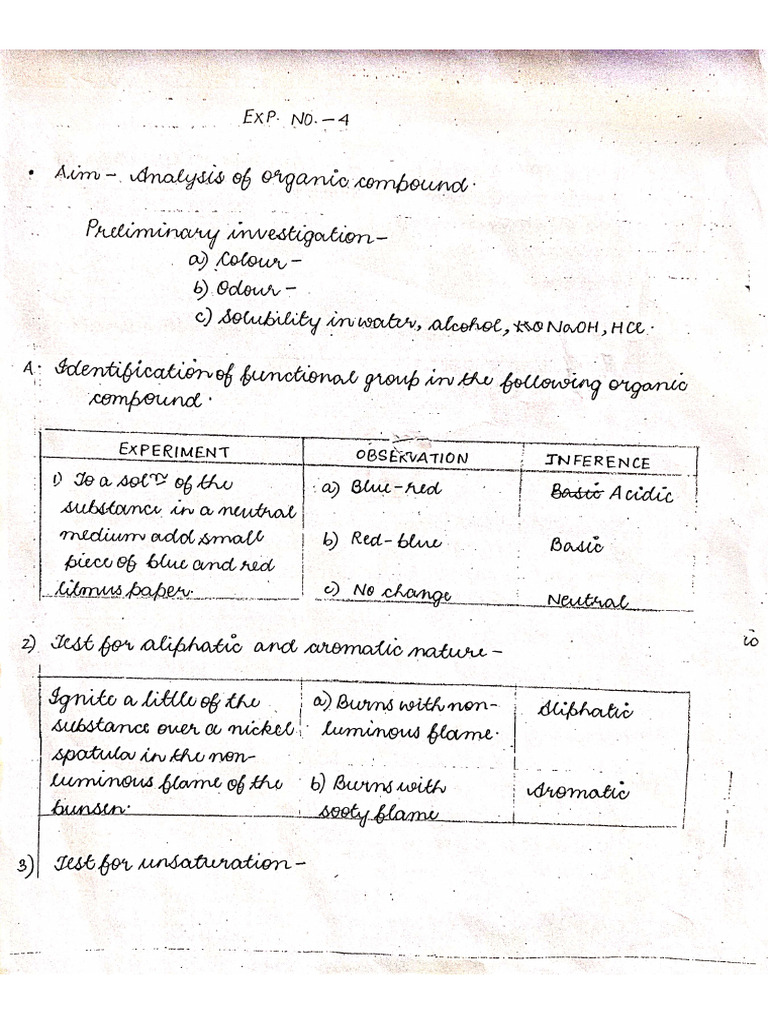 EXP. NO. - 4
• Aim - Analysis of organic compound.
Preliminary investigation -
a) Colour -
b) Odour -
c) Solubility in water, alcohol, NaOH, HCl.
A. Identification of functional group in the following organic
compound.
EXPERIMENT OBSERVATION INFERENCE
1) To a solⁿ of the a) Blue-red Basic Acidic
substance in a neutral
medium add small b) Red-blue Basic
piece of blue and red
litmus paper. c) No change Neutral
2) Test for aliphatic and aromatic nature -
io
Ignite a little of the a) Burns with non- Aliphatic
substance over a nickel luminous flame.
spatula in the non-
luminous flame of the b) Burns with Aromatic
bunsen. sooty flame
3) Test for unsaturation -